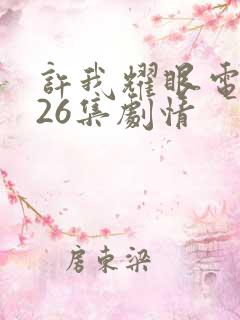 許我耀眼電
26集劇情
房東梁